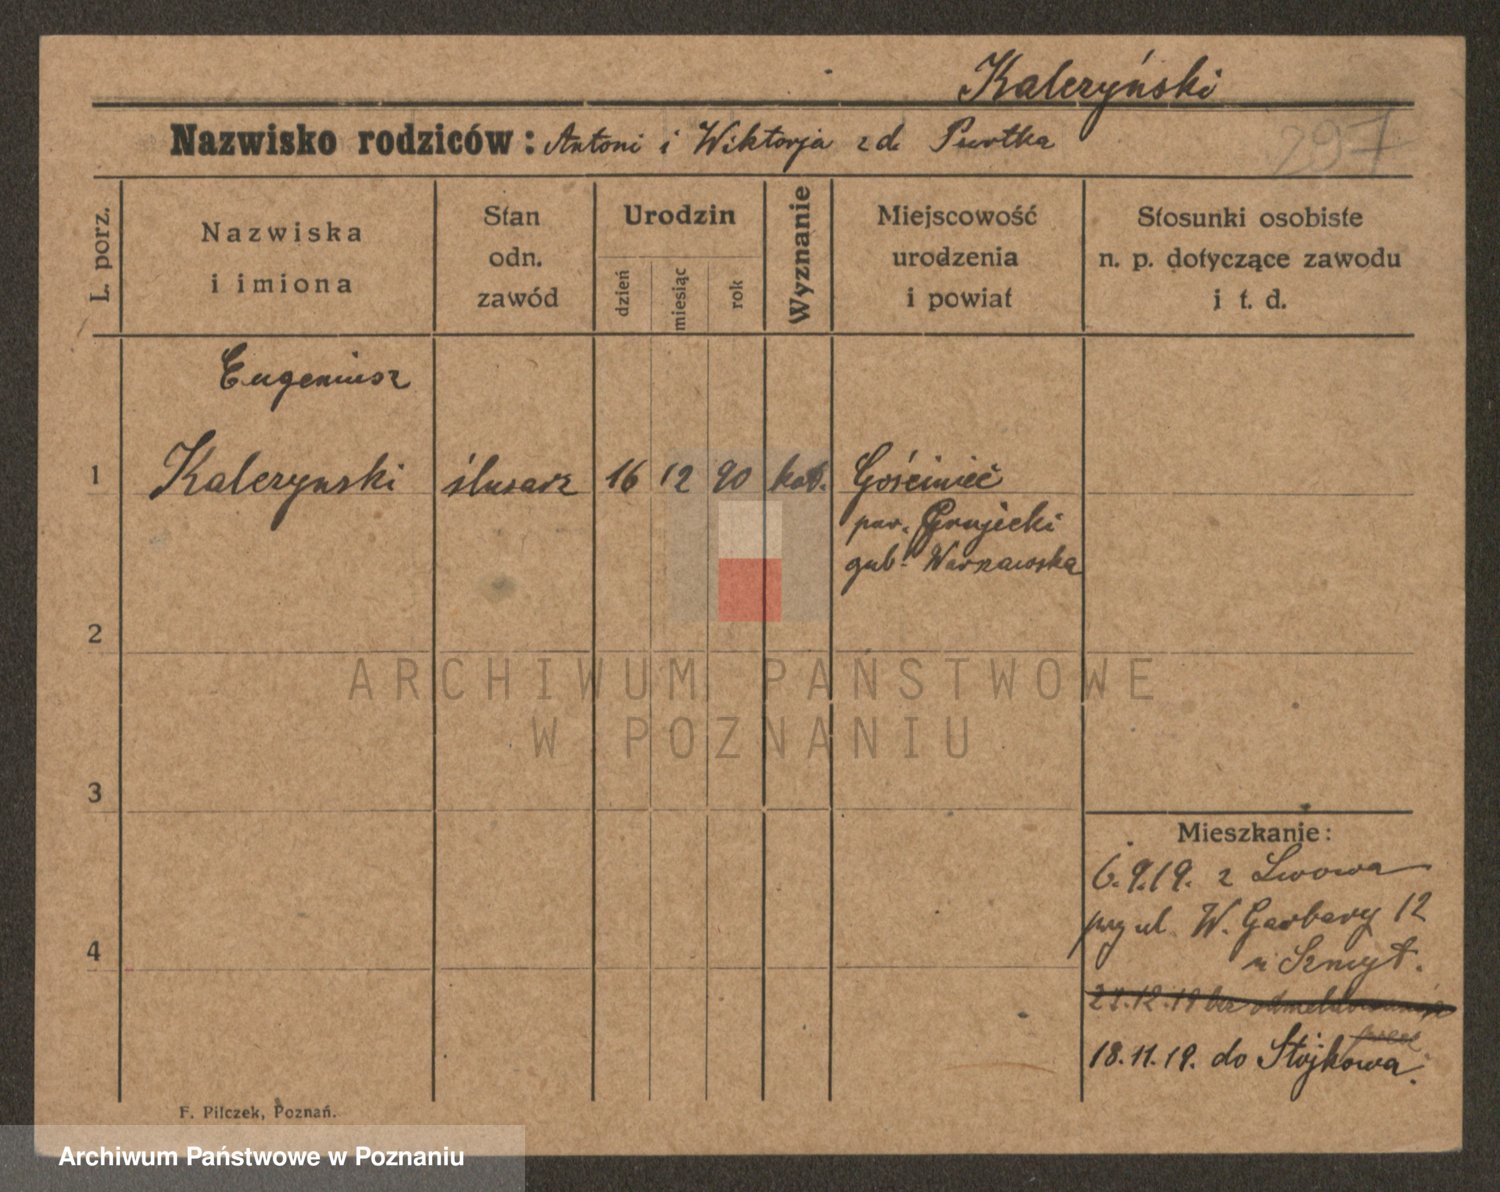 Kalczyński
Nazwisko rodziców: Antoni i Wiktorja zd. Purtka
297
L. porz.
Nazwiska
i imiona
Stan
odn.
zawód
Urodzin
dzień
miesiąc
rok
Wyznanie
Miejscowość
urodzenia
i powiat
Stosunki osobiste
n. p. dotyczące zawodu
i t. d.
Eugeniusz
1 Kalczynski ślusarz 16 12 90 kat. Gościniec
pow. Grujecki
gub. Warszawska
2
3
4
Mieszkanie:
6.9.19. z Lwowa
przy ul. W. Garbary 12
u Szmyt.
bez odmeldowania
18.11.19. do Stojkowa.
F. Pilczek, Poznań.
ARCHIWUM PAŃSTWOWE
W POZNANIU
Archiwum Państwowe w Poznaniu